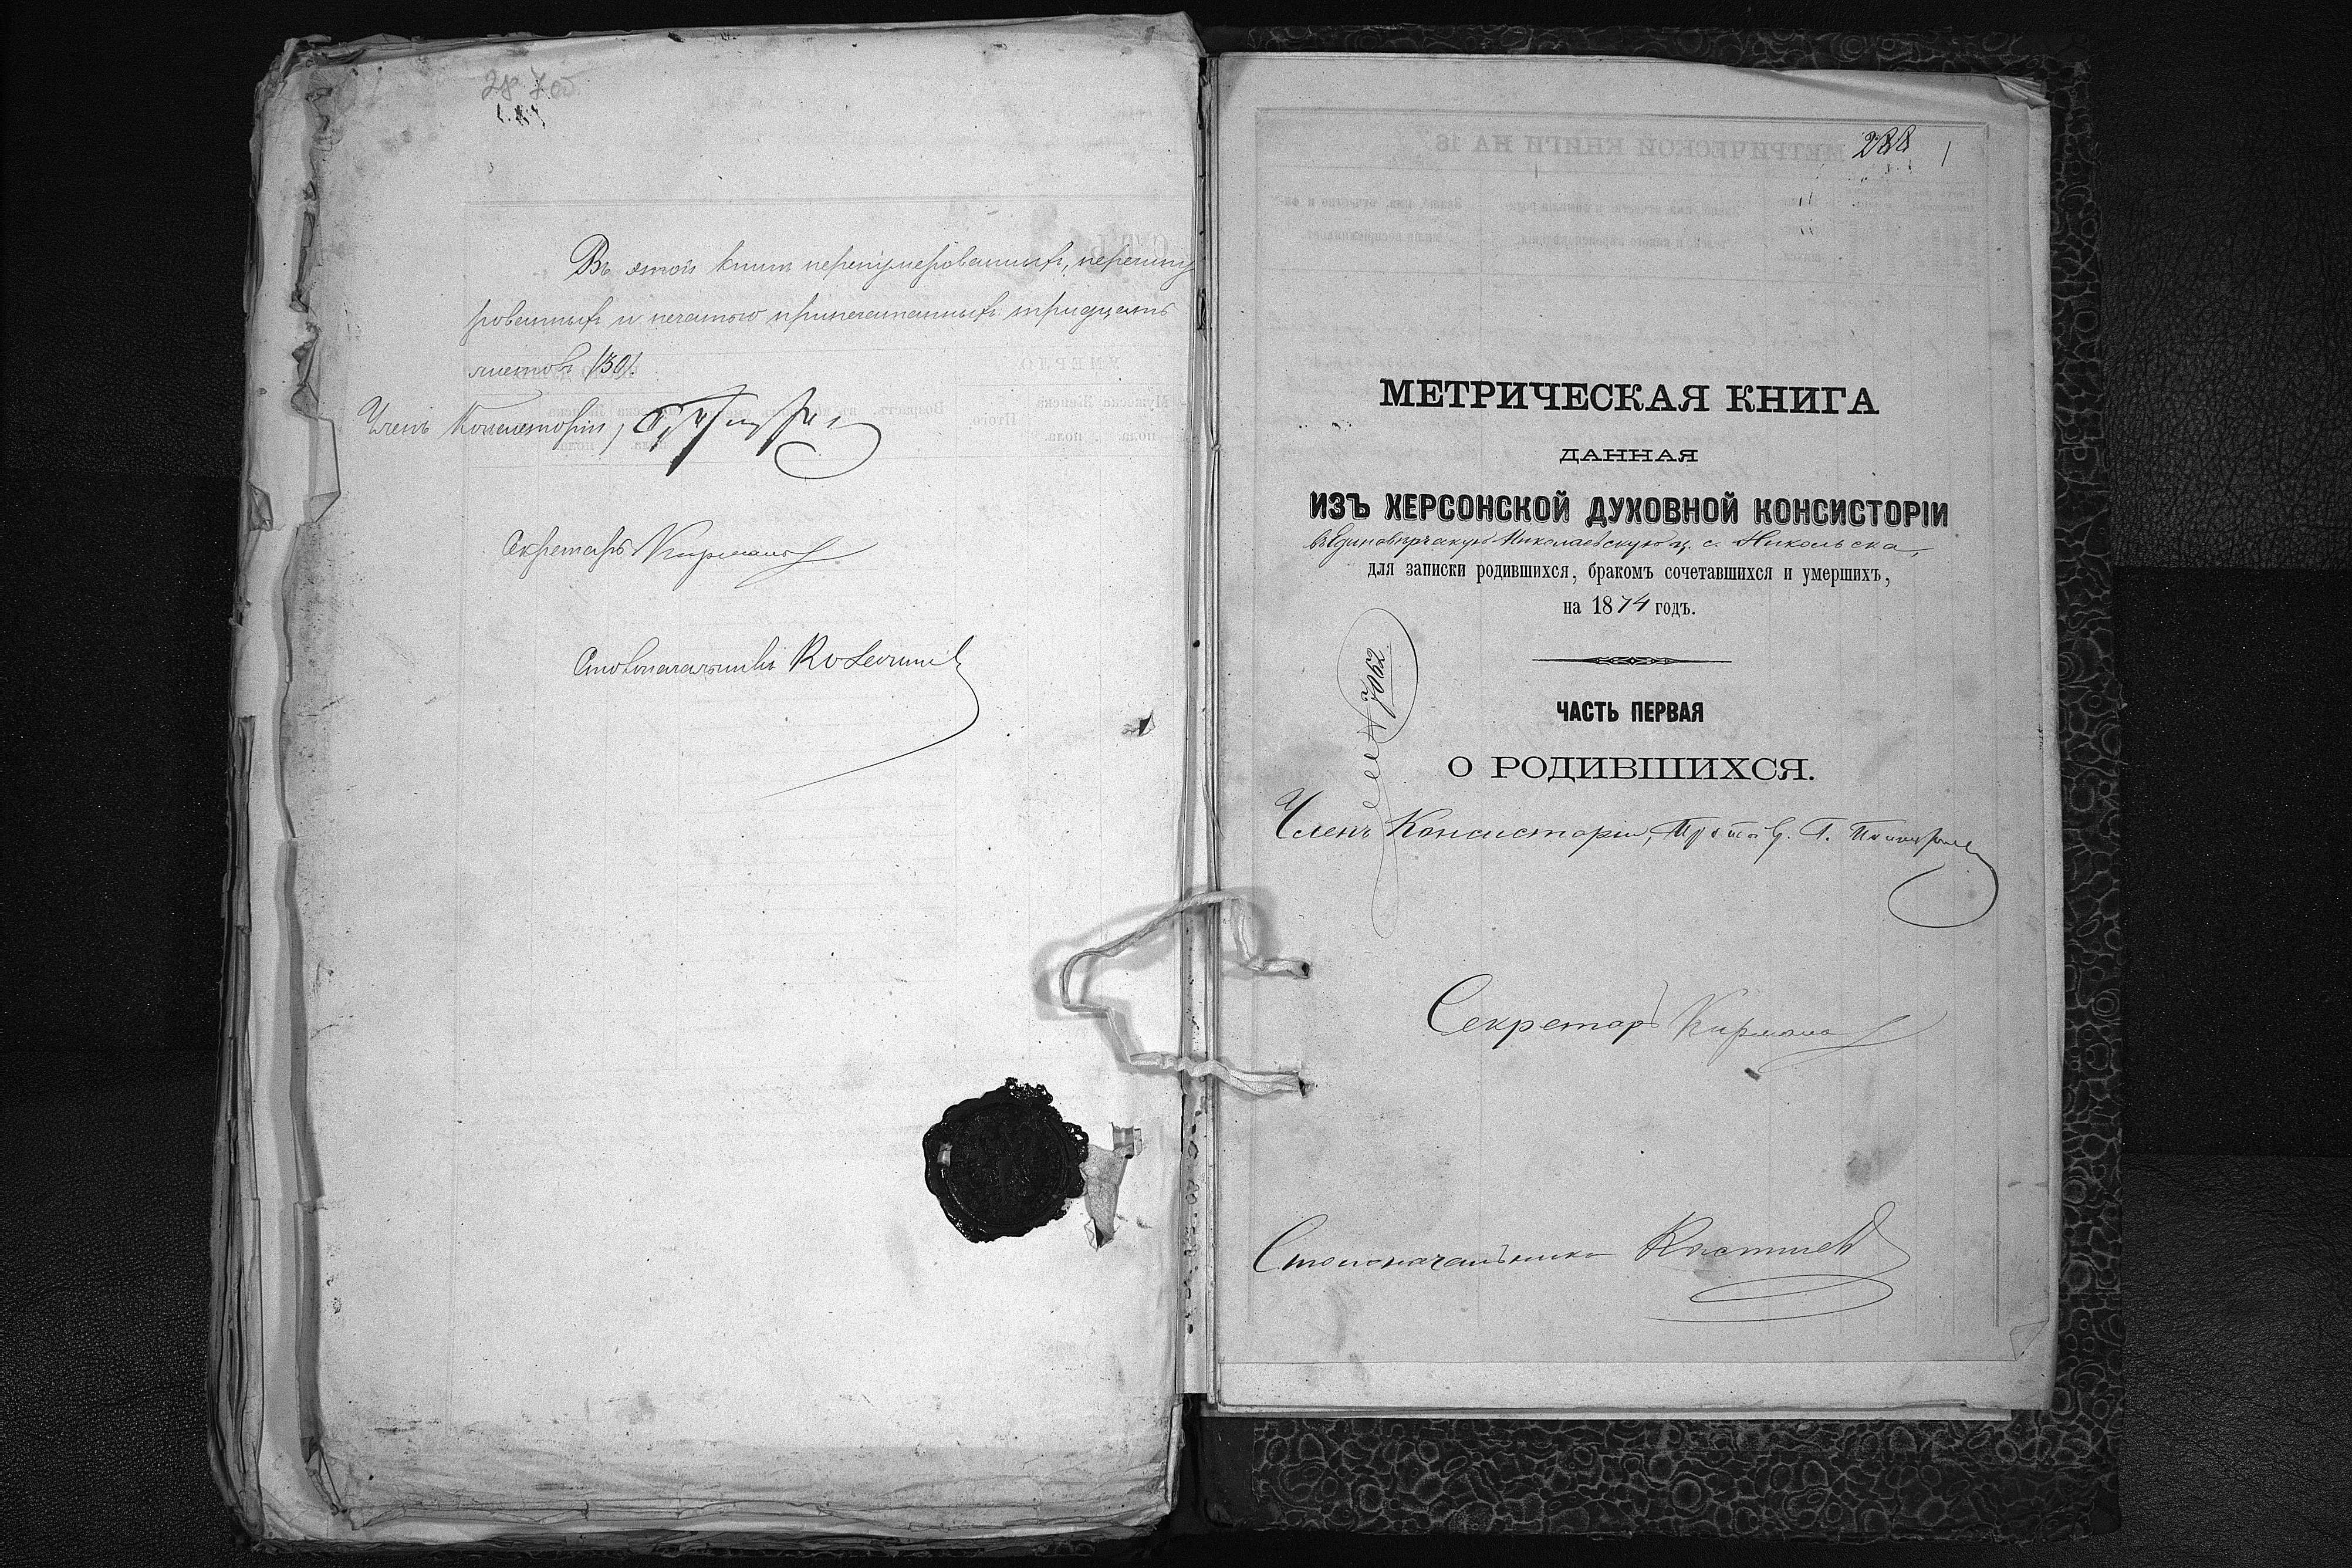 287об
Въ этой книгѣ перенумерованныхъ, перешну
рованныхъ и печатью припечатанныхъ тридцать
листовъ /30/.
Членъ Консисторіи,
Секретарь
Столоначальникъ
288
1
МЕТРИЧЕСКАЯ КНИГА
ДАННАЯ
ИЗЪ ХЕРСОНСКОЙ ДУХОВНОЙ КОНСИСТОРІИ
въ Единовѣрческую Николаевскую ц. с. Никольска,
для записки родившихся, бракомъ сочетавшихся и умершихъ,
на 1874 годъ.
№ 7662
ЧАСТЬ ПЕРВАЯ
О РОДИВШИХСЯ.
Членъ Консисторіи, Протоіер. Г.
Секретарь
Столоначальникъ